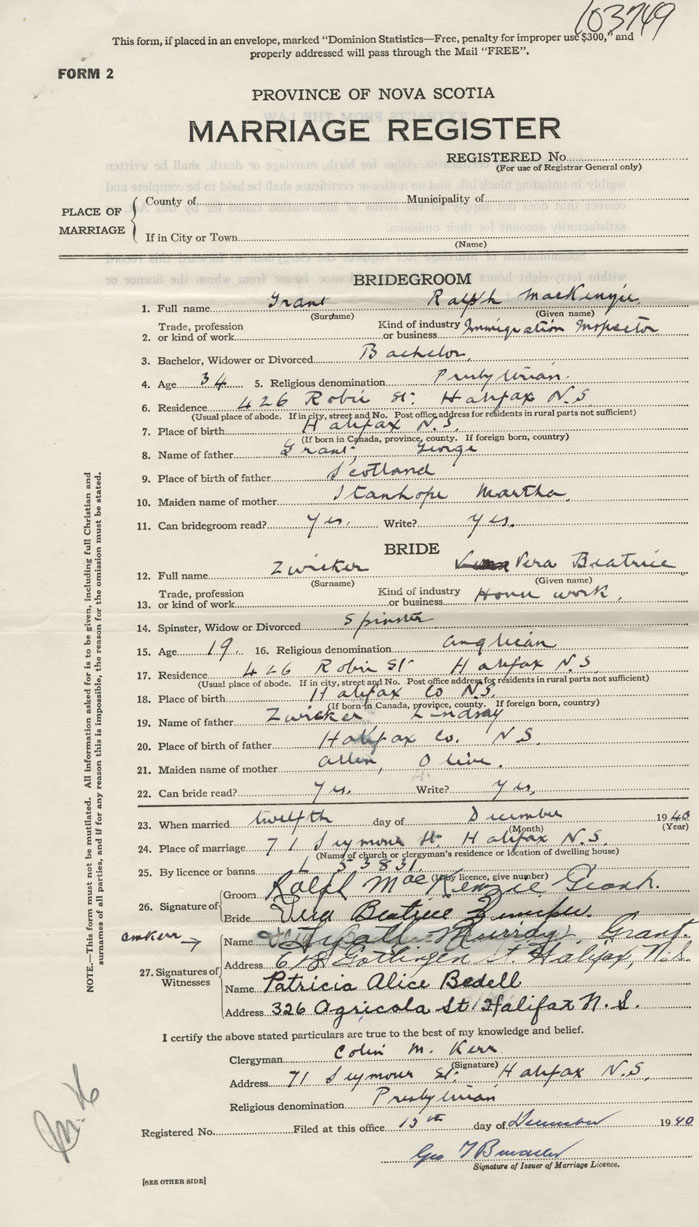 103749
This form, if placed in an envelope, marked "Dominion Statistics—Free, penalty for improper use $300," and
properly addressed will pass through the Mail "FREE".
FORM 2
PROVINCE OF NOVA SCOTIA
MARRIAGE REGISTER
REGISTERED No.
(For use of Registrar General only)
PLACE OF MARRIAGE
County of Municipality of
If in City or Town
(Name)
BRIDEGROOM
1. Full name Grant Ralph MacKenzie
(Surname) (Given name)
Trade, profession Kind of industry Immigration Inspector
2. or kind of work or business
3. Bachelor, Widower or Divorced Bachelor.
4. Age 34 5. Religious denomination Presbyterian.
6. Residence 426 Robie St. Halifax N.S.
(Usual place of abode. If in city, street and No. Post office address for residents in rural parts not sufficient)
7. Place of birth Halifax N.S.
(If born in Canada, province, county. If foreign born, country)
8. Name of father Grant, George
9. Place of birth of father Scotland
10. Maiden name of mother Stanhope Martha.
11. Can bridegroom read? Yes. Write? Yes.
BRIDE
12. Full name Zwicker Vera Beatrice
(Surname) (Given name)
Trade, profession Kind of industry House work.
13. or kind of work or business
14. Spinster, Widow or Divorced Spinster
15. Age 19. 16. Religious denomination Anglican
17. Residence 426 Robie St. Halifax N.S
(Usual place of abode. If in city, street and No. Post office address for residents in rural parts not sufficient)
18. Place of birth Halifax Co N.S.
(If born in Canada, province, county. If foreign born, country)
19. Name of father Zwicker Lindsay
20. Place of birth of father Halifax Co. N.S.
21. Maiden name of mother Allen, Olive.
22. Can bride read? Yes. Write? Yes,
23. When married twelfth day of December 1940
(Month) (Year)
24. Place of marriage 71 Seymour St. Halifax N.S.
(Name of church or clergyman's residence or location of dwelling house)
25. By licence or banns L 33831
(If by licence, give number)
26. Signature of
Groom Ralph MacKenzie Grant.
Bride Vera Beatrice Zwicker.
cmkerr →
27. Signatures of Witnesses
Name Murray Grant.
Address 618 Gottingen St Halifax, N.S.
Name Patricia Alice Bedell
Address 326 Agricola St. Halifax N.S.
I certify the above stated particulars are true to the best of my knowledge and belief.
Clergyman Colin M. Kerr
(Signature)
Address 71 Seymour St. Halifax N.S.
Religious denomination Presbyterian
Registered No. Filed at this office 13th day of December 1940
Geo
Signature of Issuer of Marriage Licence.
[SEE OTHER SIDE]
NOTE.—This form must not be mutilated. All information asked for is to be given, including full Christian and
surnames of all parties, and if for any reason this is impossible, the reason for the omission must be stated.